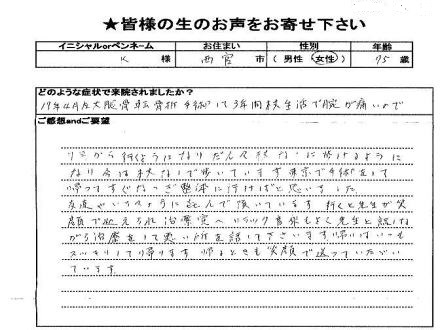 ★皆様の生のお声をお寄せ下さい
イニシャルorペンネーム お住まい 性別 年齢
K 様 西宮 市 (男性 女性) 75 歳
どのような症状で来院されましたか?
19年4月左大腿骨転骨折手術して3年間杖生活で腕が痛いので
ご感想andご要望
から行くようになりだんだん杖なしに歩けるように
なり今は杖なしで歩いています 東京で手術をして
帰ってすぐなつぎ整体に行けばと思いました
友達やいろいろように込んで頂いています 行くと先生が笑
顔で迎えられ治療室へ リラック音楽もよく先生と話しな
がら治療をして悪い所を話して下さいます 帰りはいつも
スッキリして帰ります 帰るときも笑顔で送っていただい
ています。